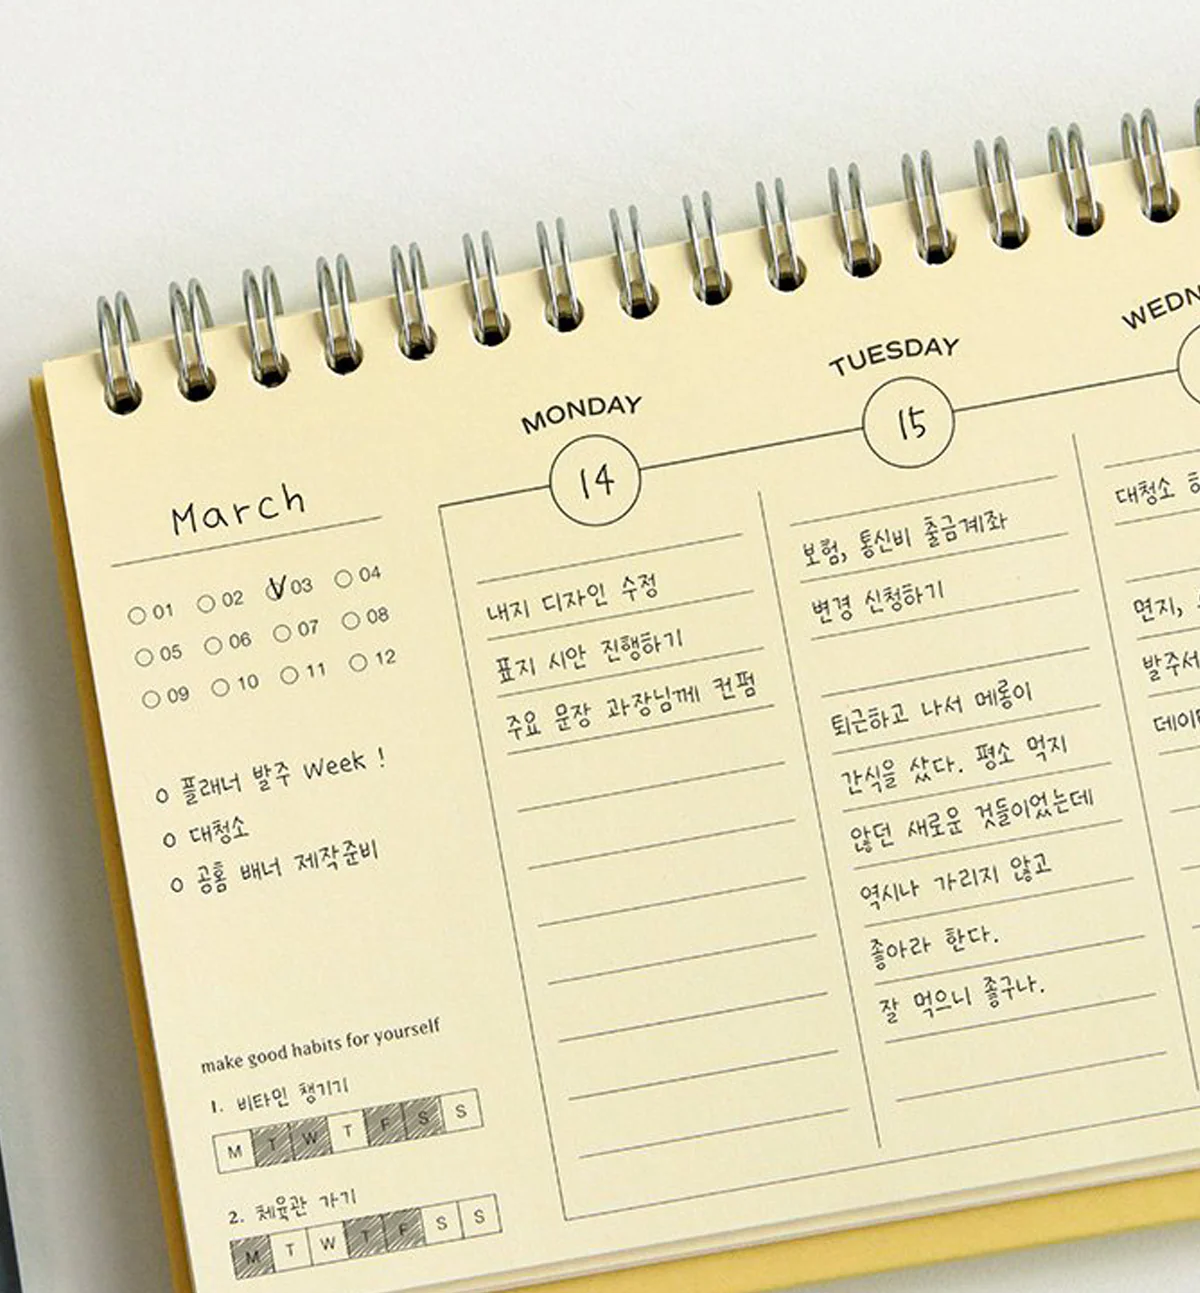 March
01 02 03 04
05 06 07 08
09 10 11 12
o 플래너 발주 Week !
o 대청소
o 공홈 배너 제작준비
make good habits for yourself
1. 비타민 챙기기
M T W T F S S
2. 체육관 가기
M T W T F S S
MONDAY
14
내지 디자인 수정
표지 시안 진행하기
주요 문장 과장님께 컨펌
TUESDAY
15
보험, 통신비 출금계좌
변경 신청하기
퇴근하고 나서 메롱이
간식을 샀다. 평소 먹지
않던 새로운 것들이었는데
역시나 가리지 않고
좋아라 한다.
잘 먹으니 좋구나.
WEDN
대청소
면지,
발주서